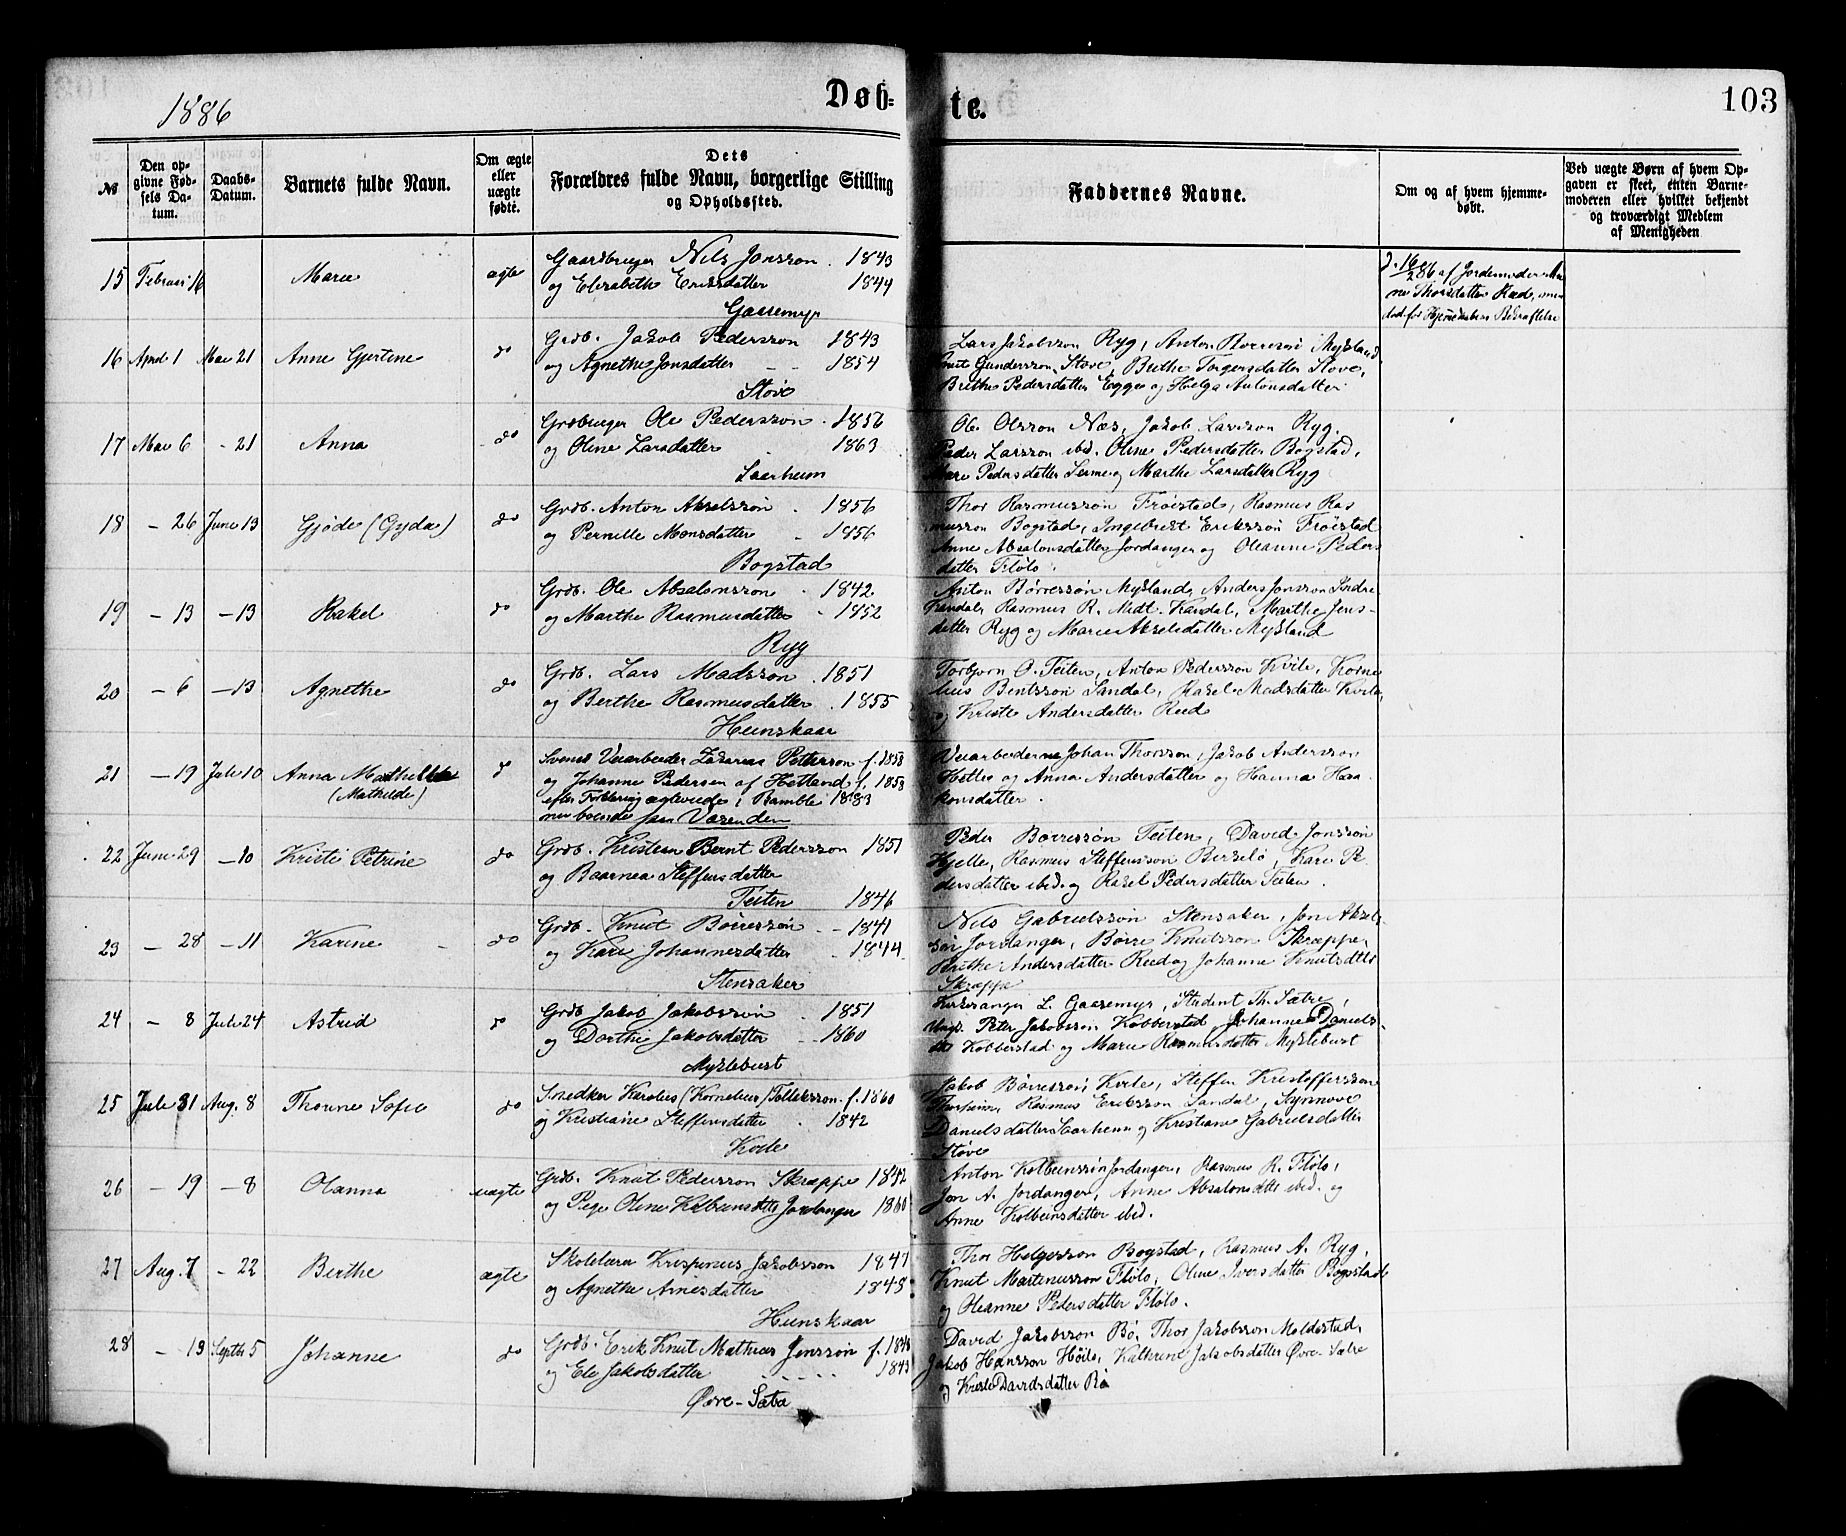 1886
Døb=
te.
103
№
Den op-
givne Fød-
sels Da-
tum.
Daabs-
Datum.
Barnets fulde Navn.
Om ægte
eller
uægte
født.
Dets
Forældres fulde Navn, borgerlige Stilling
og Opholdssted.
Faddernes Navne.
Om og af hvem hjemme-
døbt.
Ved uægte Børn af hvem Op-
gaven er skeet, enten Barne-
moderen eller hvilket bekjendt
og troværdigt Medlem
af Menigheden
15 Februar 16 Marie ægte Gaardbruger Nils Jonsson 1843
og Elisabeth Eriksdatter 1844
Gaasemyr
16/2 86 af Jordemoder
Thorsdatter Reed,
16 April 1 Mai 21 Anne Gjertine do Grdb. Jakob Pedersson 1843
og Agnethe Jonsdatter 1854
Støve
Lars Jakobsson Ryg, Anton Børresøn Mykland
Knut Gundersson Støve, Berthe Torgersdatter Støve,
Brithe Pedersdatter Egge og Helga Antonsdatter
17 Mai 6 - 21 Anna do Grdbruger Ole Pederssøn 1856
og Oline Larsdatter 1863
Saarheim
Ole Olsson Næs, Jakob Larsson Ryg,
Peder Larsson ibid. Oline Pedersdatter Bogstad,
Pedersdatter og Marthe Larsdatter Ryg
18 - 26 Juni 13 Gjøde (Gyda) do Grdb. Anton Akselssøn 1856
og Pernille Monsdatter 1856
Bogstad
Thor Rasmussøn Frøistad, Rasmus Ras
musson Bogstad, Ingebrigt Erikssøn Frøistad
Anne Absalonsdatter Jordanger og Oleanne Peders
datter Fløtø
19 - 13 - 13 Rakel do Grdb. Ole Absalonsson 1842
og Marthe Rasmusdatter 1852
Ryg
Anton Børressøn Mykland, Anders Jonsson Indre
Kandal, Rasmus R. Mdt. Kandal, Marthe Jens-
datter Ryg og Marie Akselsdatter Mykland
20 - 6 - 13 Agnethe do Grdb. Lars Madsson 1851
og Berthe Rasmusdatter 1855
Heinskaar
Torbjørn O. Teiten, Anton Pedersson Kvile, Korne
lius Bentsson Sandal, Rakel Madsdatter Kvile,
og Kristi Andersdatter Reed
21 - 19 Juli 10 Anna Mathilde
(Mathilde)
Svensk Veiarbeider Zakarias Petterson f. 1858
og Johanne Pedersen af Hetland f. 1858
efter Forklaring ægteviede i Bamble 1883
nu boende paa Vasenden
Veiarbeiderne Johan Thorsson, Jakob Andersson
og Anna Andersdatter og Hanna Haa
konsdatter.
22 Juni 29 - 10 Kristi Petrine do Grdb. Kristian Bernt Pedersson 1851
og Baarnea Steffensdatter
Teiten 1846
Peder Børressøn Teiten, David Jonssøn
Hjelle, Rasmus Steffensson Birkelo, Kari Pe
dersdatter ibid. og Rakel Pedersdatter Teiten.
23 - 28 - 11 Karine do Grdb. Knut Børressøn 1841
og Kari Johannesdatter 1844
Stensaker
Nils Gabrielssøn Stensaker, Jon Aksels-
søn Jordanger, Børre Knutsson Skrøppe,
Brithe Andersdatter Reed og Johanne Knutsdtr
Skrøppe
24 - 8 Juli 24 Astrid do Grdb. Jakob Jakobssøn 1851
og Dorthe Jakobsdatter 1860
Myklebust
Kirkesanger L. Gaasemyr, Student Th. Sætre,
Ungk. Peter Jakobsson Kobberstad, Johanne Daniels-
dtr Kobberstad og Marie Rasmusdatter Myklebust
25 Juli 31 Aug. 8 Thorine Sofie do Snedker Karolius (Kornelius) Tolleksson f. 1860
og Kristiane Steffensdatter 1842
Kvile
Jakob Børressøn Kvile, Steffen Kristoffersson
Rasmus Eriksson Sandal, Synnøve
Danielsdatter Saarheim og Kristiane Gabrielsdatter
Støve
26 - 19 - 8 Olanna uægte Grdb. Knut Pedersson Skrøppe 1842
og Pige Oline Kolbeinsdtr Jordanger 1860
Anton Kolbeinssøn Jordanger, Rasmus R. Fløtø,
Jon A. Jordanger, Anne Absalonsdtr ibid. og
Anne Kolbeinsdatter ibid.
27 Aug. 7 - 22 Berthe ægte Skolelærer Krispinus Jakobsson 1847
og Agnethe Arnesdatter 1848
Heinskaar
Thor Helgesson Bogstad, Rasmus A. Ryg,
Knut Martinusson Fløtø, Oline Iversdatter Bogstad
og Oleanne Pedersdatter Fløtø.
28 - 19 Septbr 5 Johanne do Grdb. Erik Knut Mathias Jonssøn f. 1848
og Eli Jakobsdatter 1843
Øvre-Sætre
David Jakobsson Bø, Thor Jakobsson Moldestad,
Jakob Hansson Høilo, Kathrine Jakobsdatter Øvre-Sætre
og Kristi Davidsdatter Bø